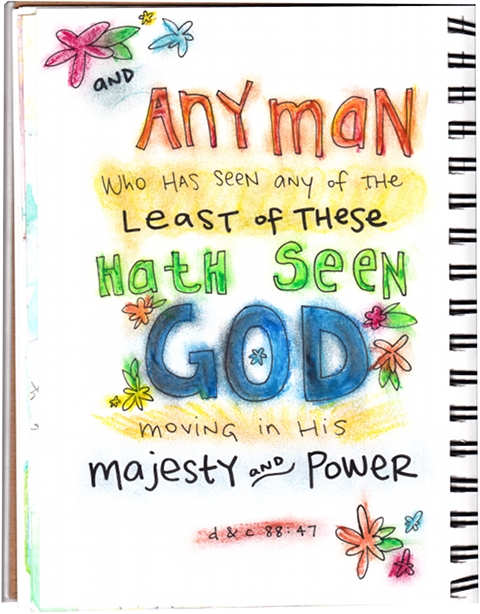 AND
ANY MAN
WHO HAS SEEN ANY OF THE
LEAST OF THESE
HATH SEEN
GOD
MOVING IN HIS
MAJESTY AND POWER
d & c 88:47